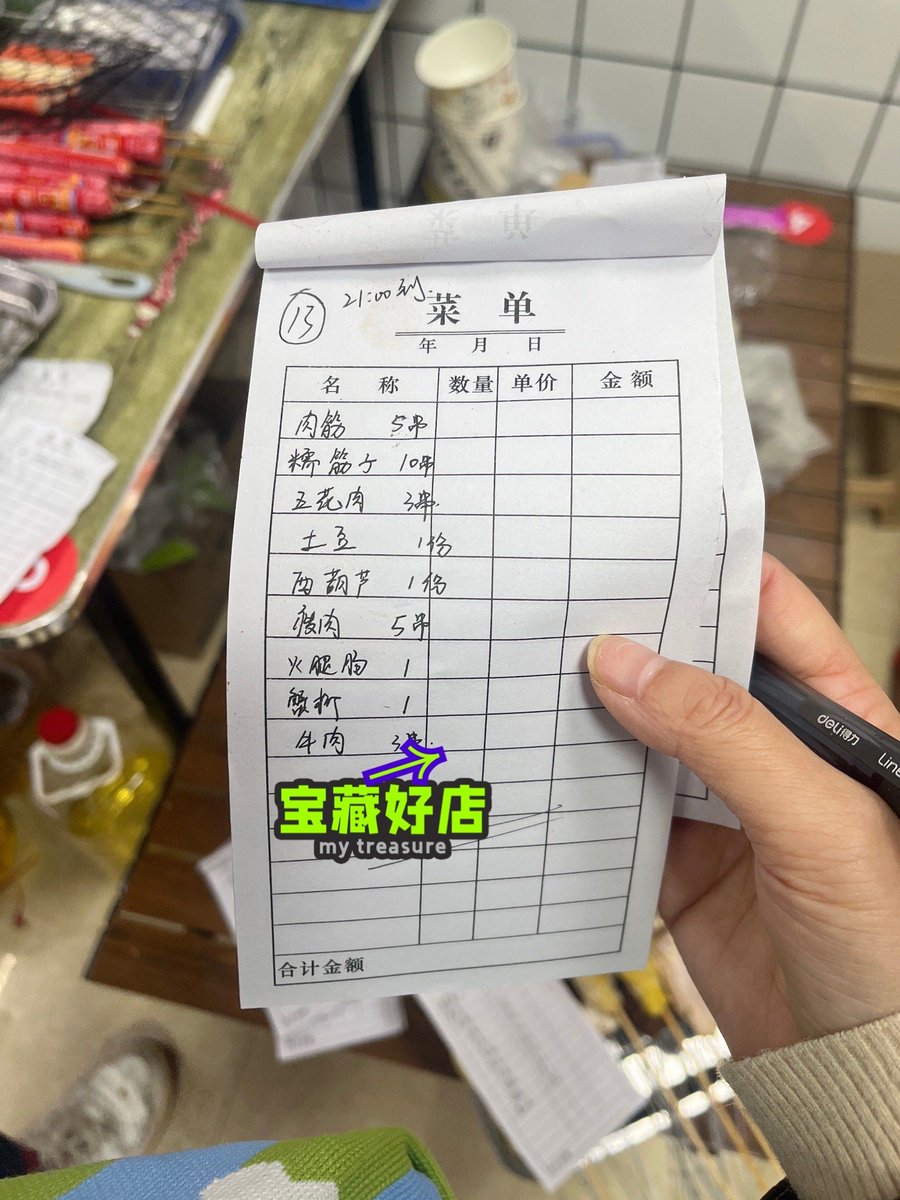 13
21:00到
菜 单
年 月 日
名 称 数量 单价 金额
肉筋 5串
糯筋子 10串
五花肉 3串
土豆 1份
西葫芦 1份
瘦肉 5串
火腿肠 1
蟹柳 1
牛肉 3串
宝藏好店
my treasure
合计金额
deli得力
Line